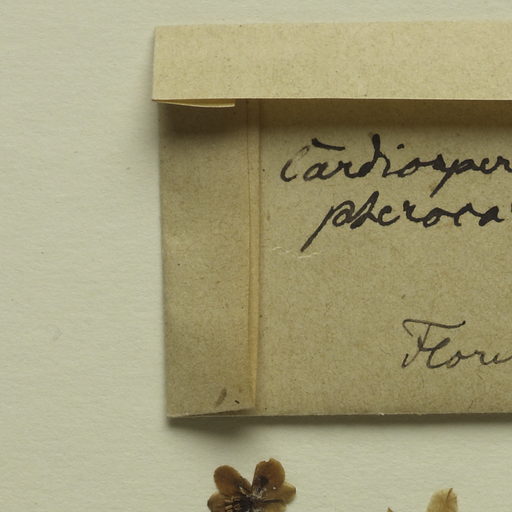 Cardiosper
pterocar
Flori